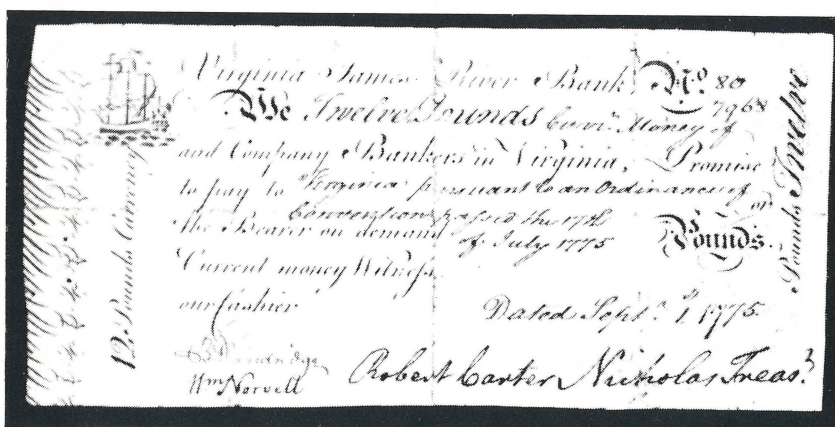 Virginia James River Bank No. 80
7968
We Twelve Pounds Curr. Money of
and Company Bankers in Virginia, Promise
to pay to Virginia pursuant to an Ordinance of
or
Convention passed the 17th
the Bearer on demand of July 1775 Pounds.
Current money Witness
our Cashier
Dated Sept. 1, 1775.
Dandridge
Wm Norvell Robert Carter Nicholas Treasr.
12 Pounds Currency
Pounds Twelve